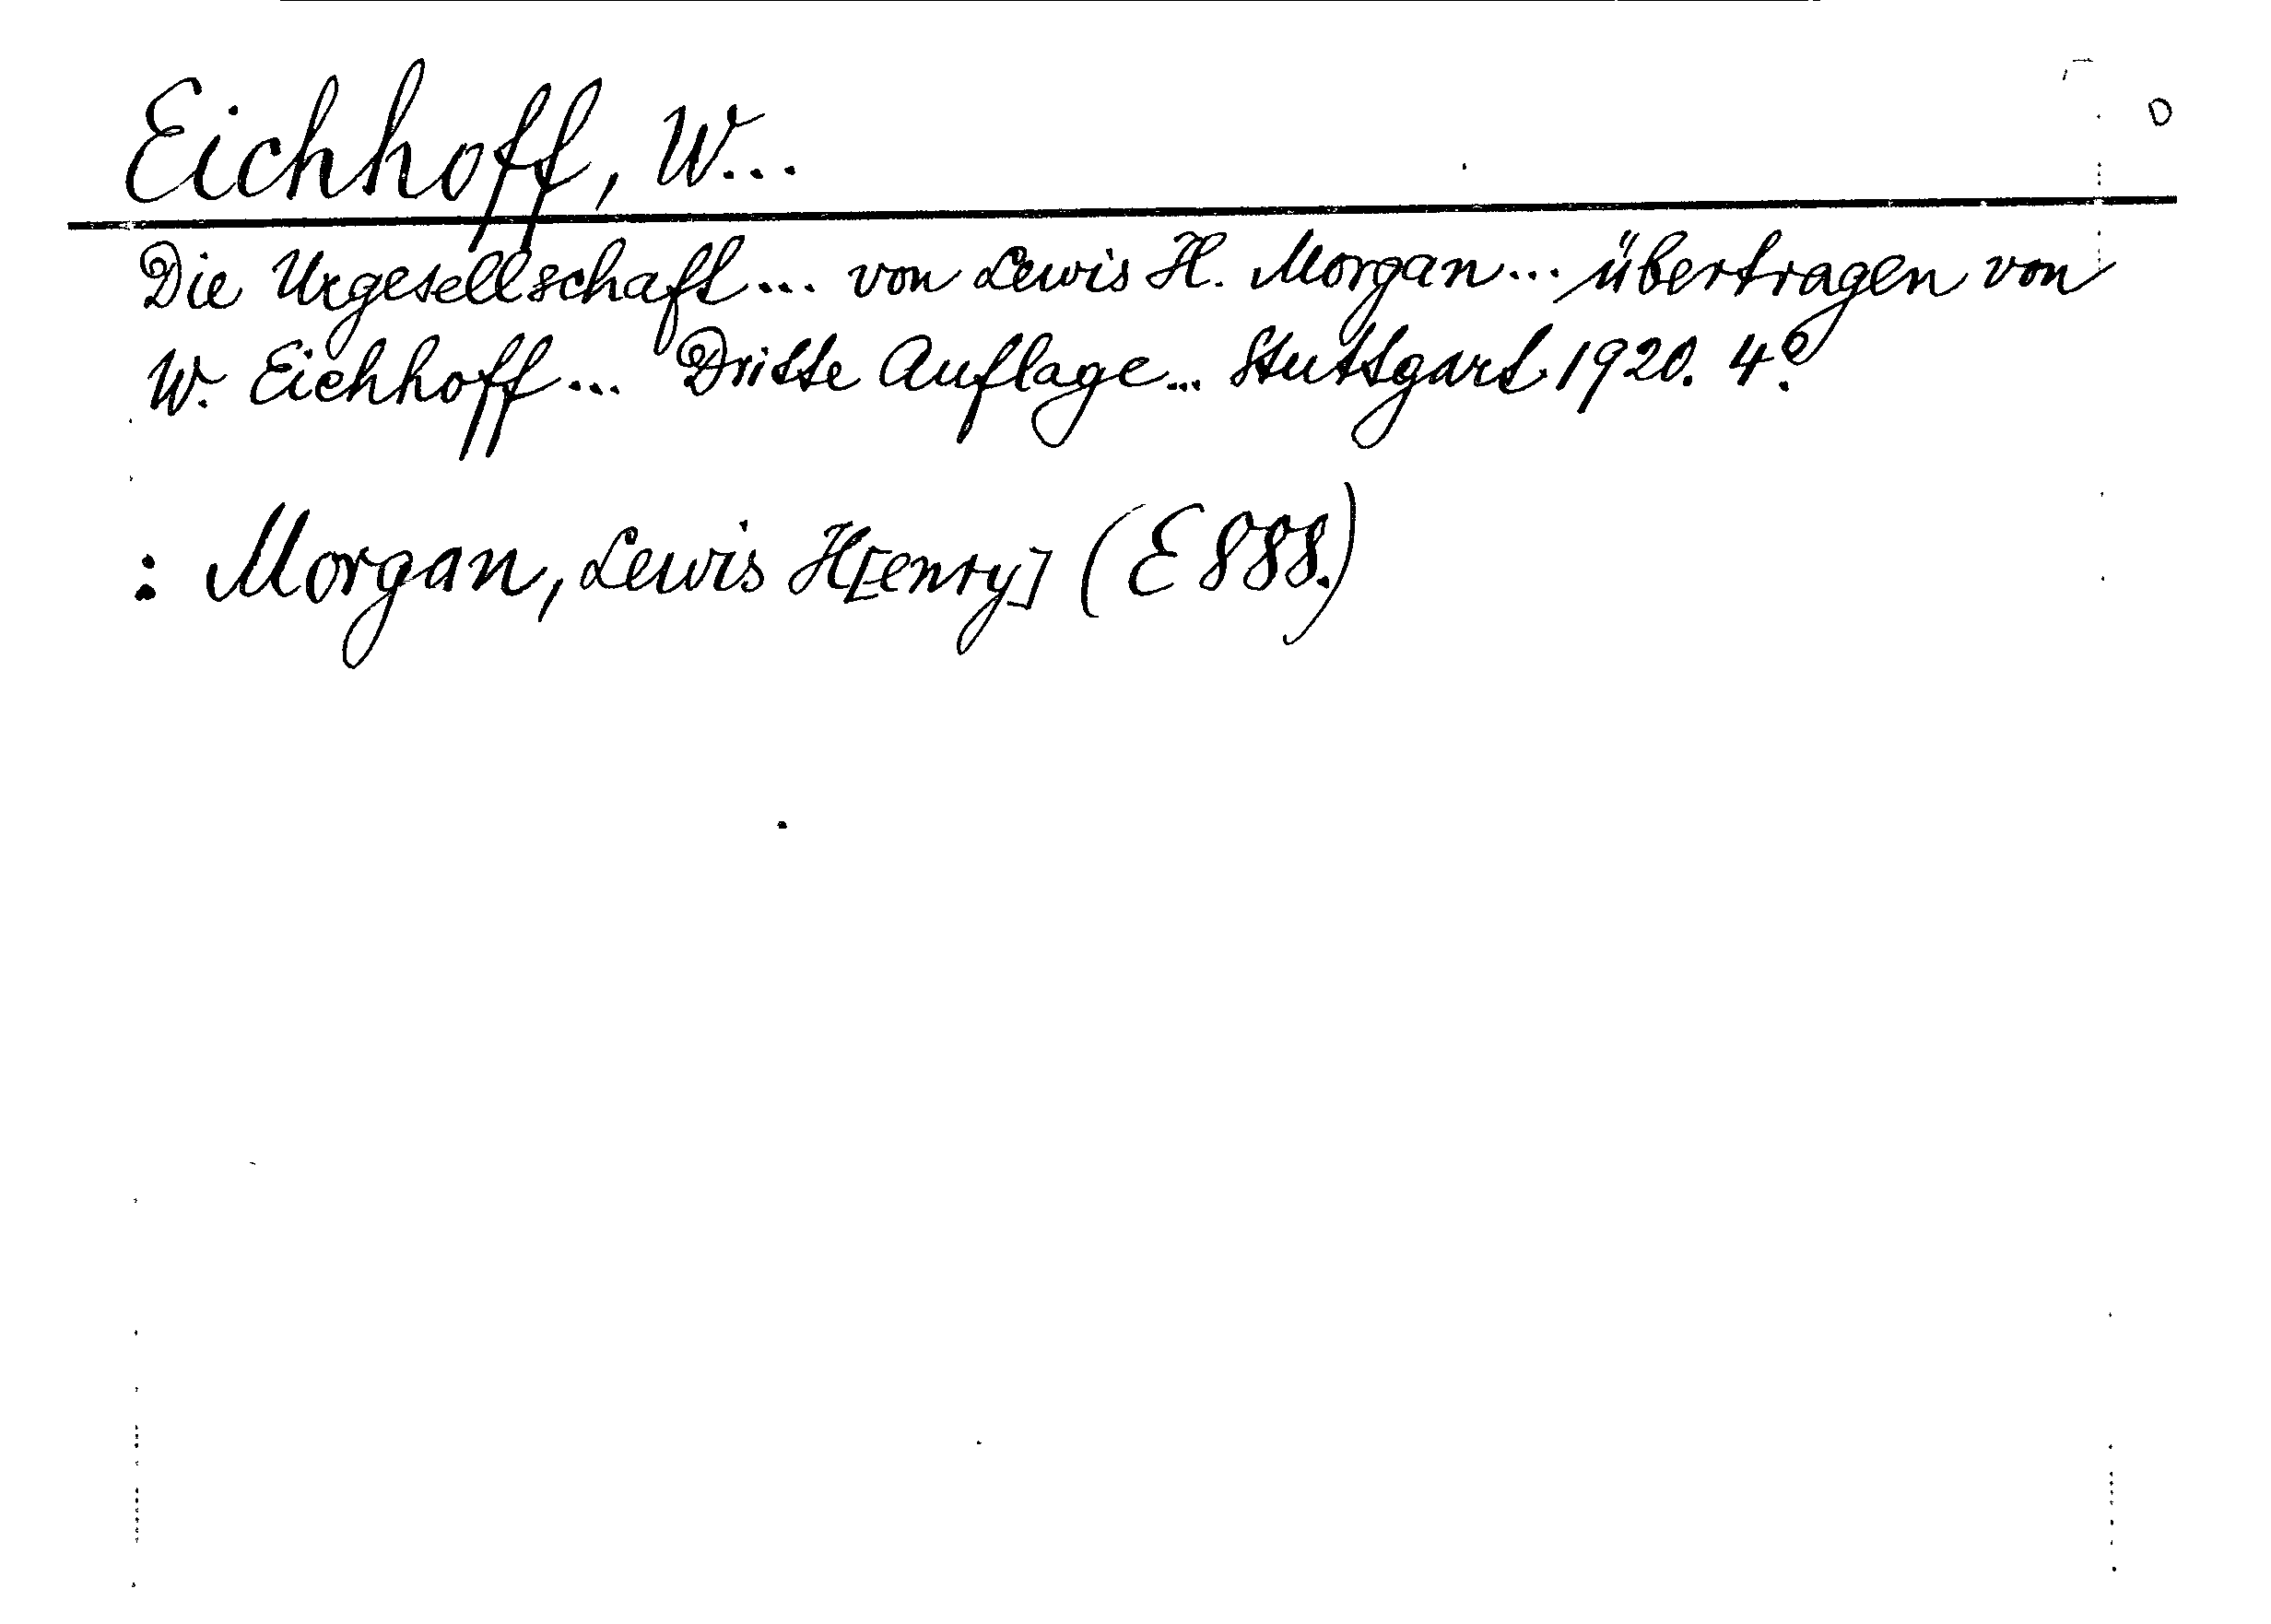 D
Eichhoff, W...
Die Urgesellschaft... von Lewis H. Morgan... übertragen von
W. Eichhoff... Dritte Auflage... Stuttgart. 1920. 4º.
: Morgan, Lewis H[enry] (E 888.)